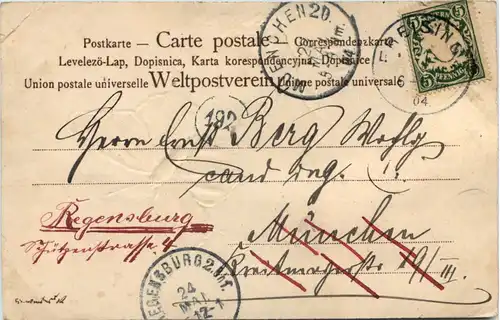 Postkarte – Carte postale – Correspondenzkarte
Levelező-Lap, Dopisnica, Karta korespondencyjna, Dopisnice
Union postale universelle Weltpostverein Unione postale universale
MUENCHEN 20.
FREISING
04
5
5
PFENNIG
182
Herrn Ernst Berg Wohlg
cand. ing.
Regensburg
München
Schützenstrasse 4
19/III.
REGENSBURG 2.
24
MAI
12-1